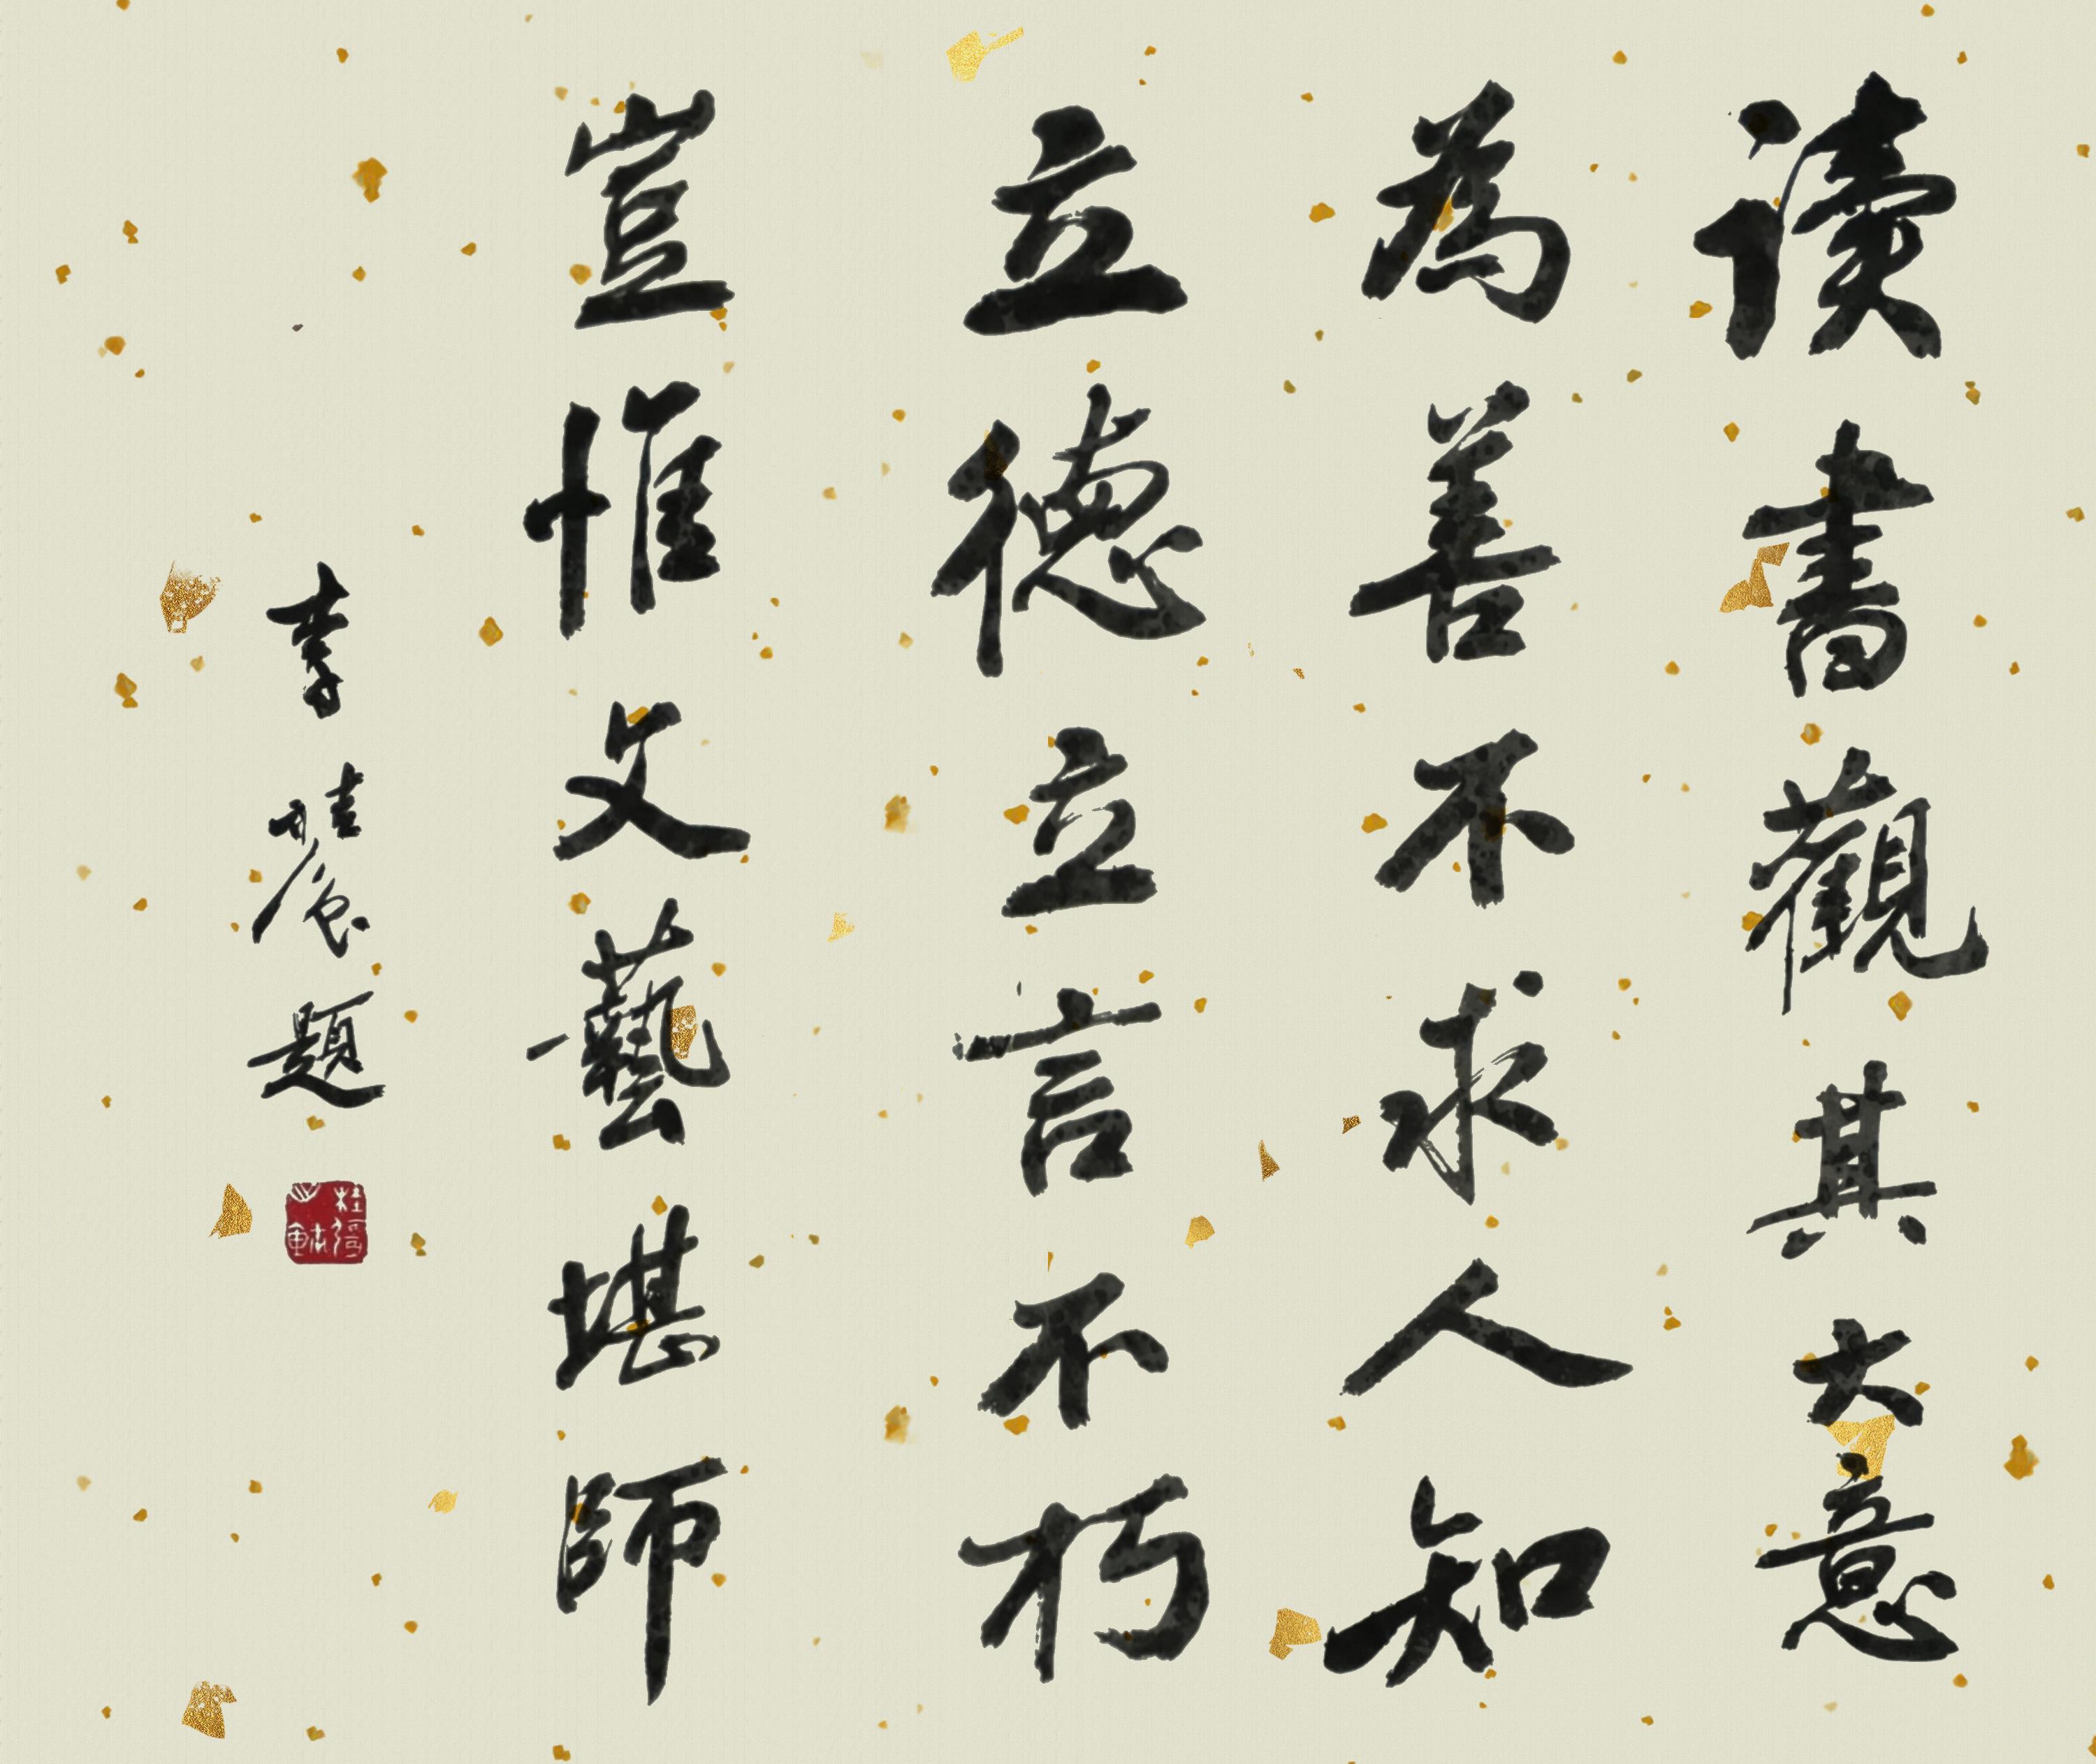 读書觀其大意
為善不求人知
立德立言不朽
豈惟文藝堪師
李 題